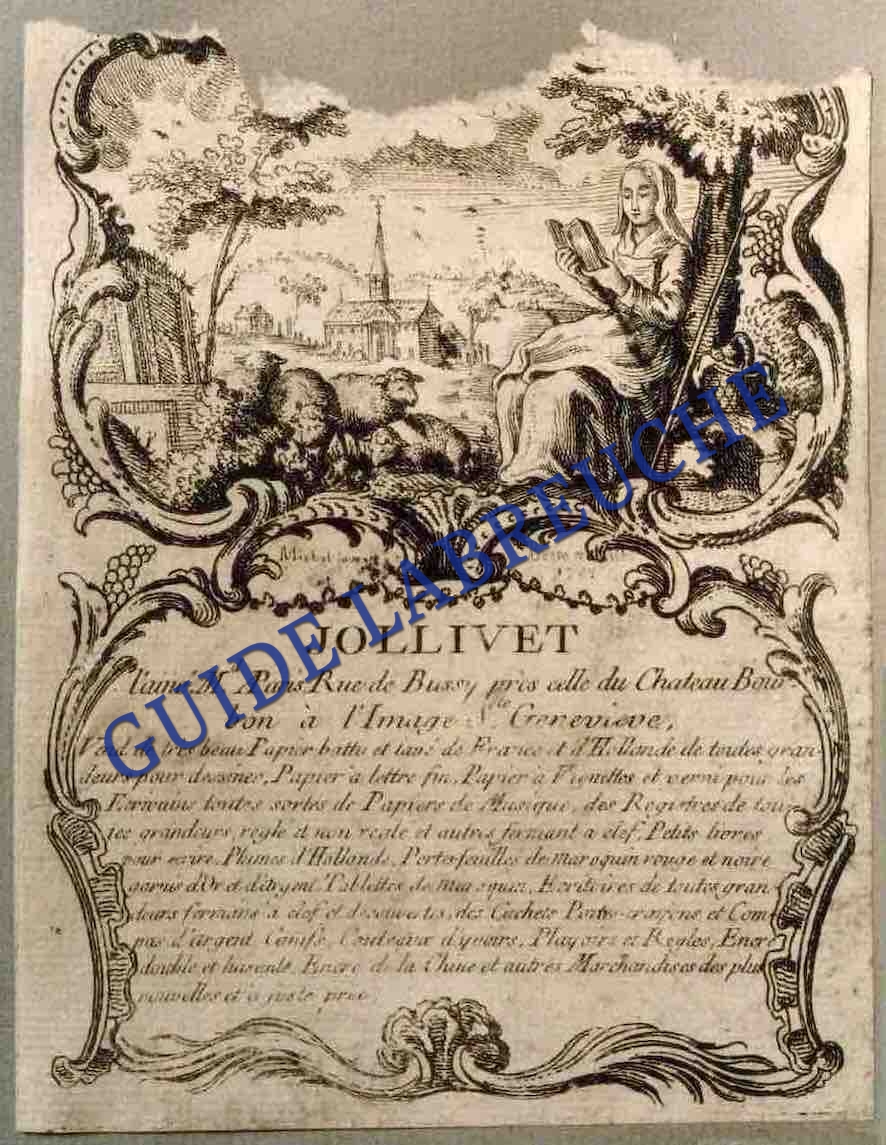 JOLLIVET
l'ainé M.d Paris Rue de Bussy près celle du Chateau Bour-
bon à l'Image S.te Genevieve,
Vend de tres beau Papier battu et lavé de France et d'Hollande de toutes gran-
deurs pour dessiner, Papier a lettre fin, Papier à Vignettes et verni pour les
Ecrivains toutes sortes de Papiers de Musique, des Registres de tou-
tes grandeurs, reglé et non reglé et autres fermant a clef, Petits livres
pour ecrire, Plumes d'Hollande, Porte-feuilles de maroquin rouge et noire
garnis d'Or et d'Argent Tablettes de maroquin, Ecritoires de toutes gran-
deurs fermans a clef et decouvertes, des Cachets Porte-crayons et Com-
pas d'argent, Canifs, Couteaux d'yvoire, Playoirs et Regles, Encre
double et luisente, Encre de la Chine et autres Marchandises des plus
nouvelles et à juste prix
GUIDE LABREUCHE